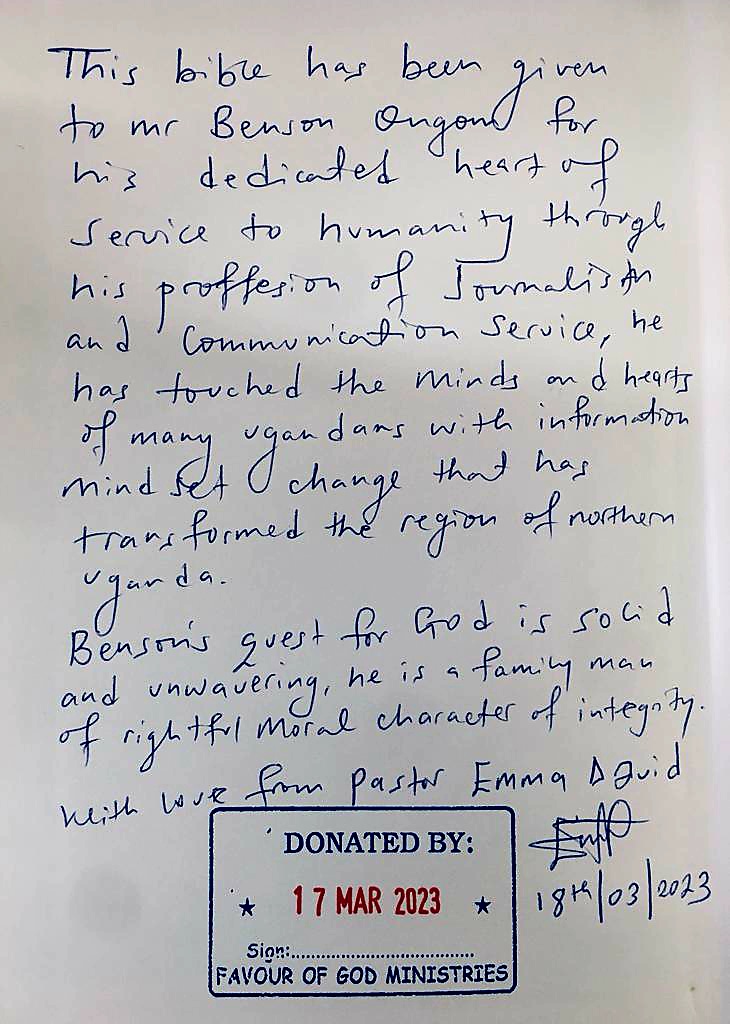 This bible has been given
to mr Benson Ongom for
his dedicated heart of
Service to humanity through
his proffesion of Journalism
and Communication Service, he
has touched the minds and hearts
of many ugandans with information
mind set change that has
transformed the region of northern
uganda.
Benson's quest for God is solid
and unwavering, he is a family man
of rightful moral character of integrity.
With love from Pastor Emma David
DONATED BY:
★ 17 MAR 2023 ★
18th/03/2023
Sign:....................................
FAVOUR OF GOD MINISTRIES